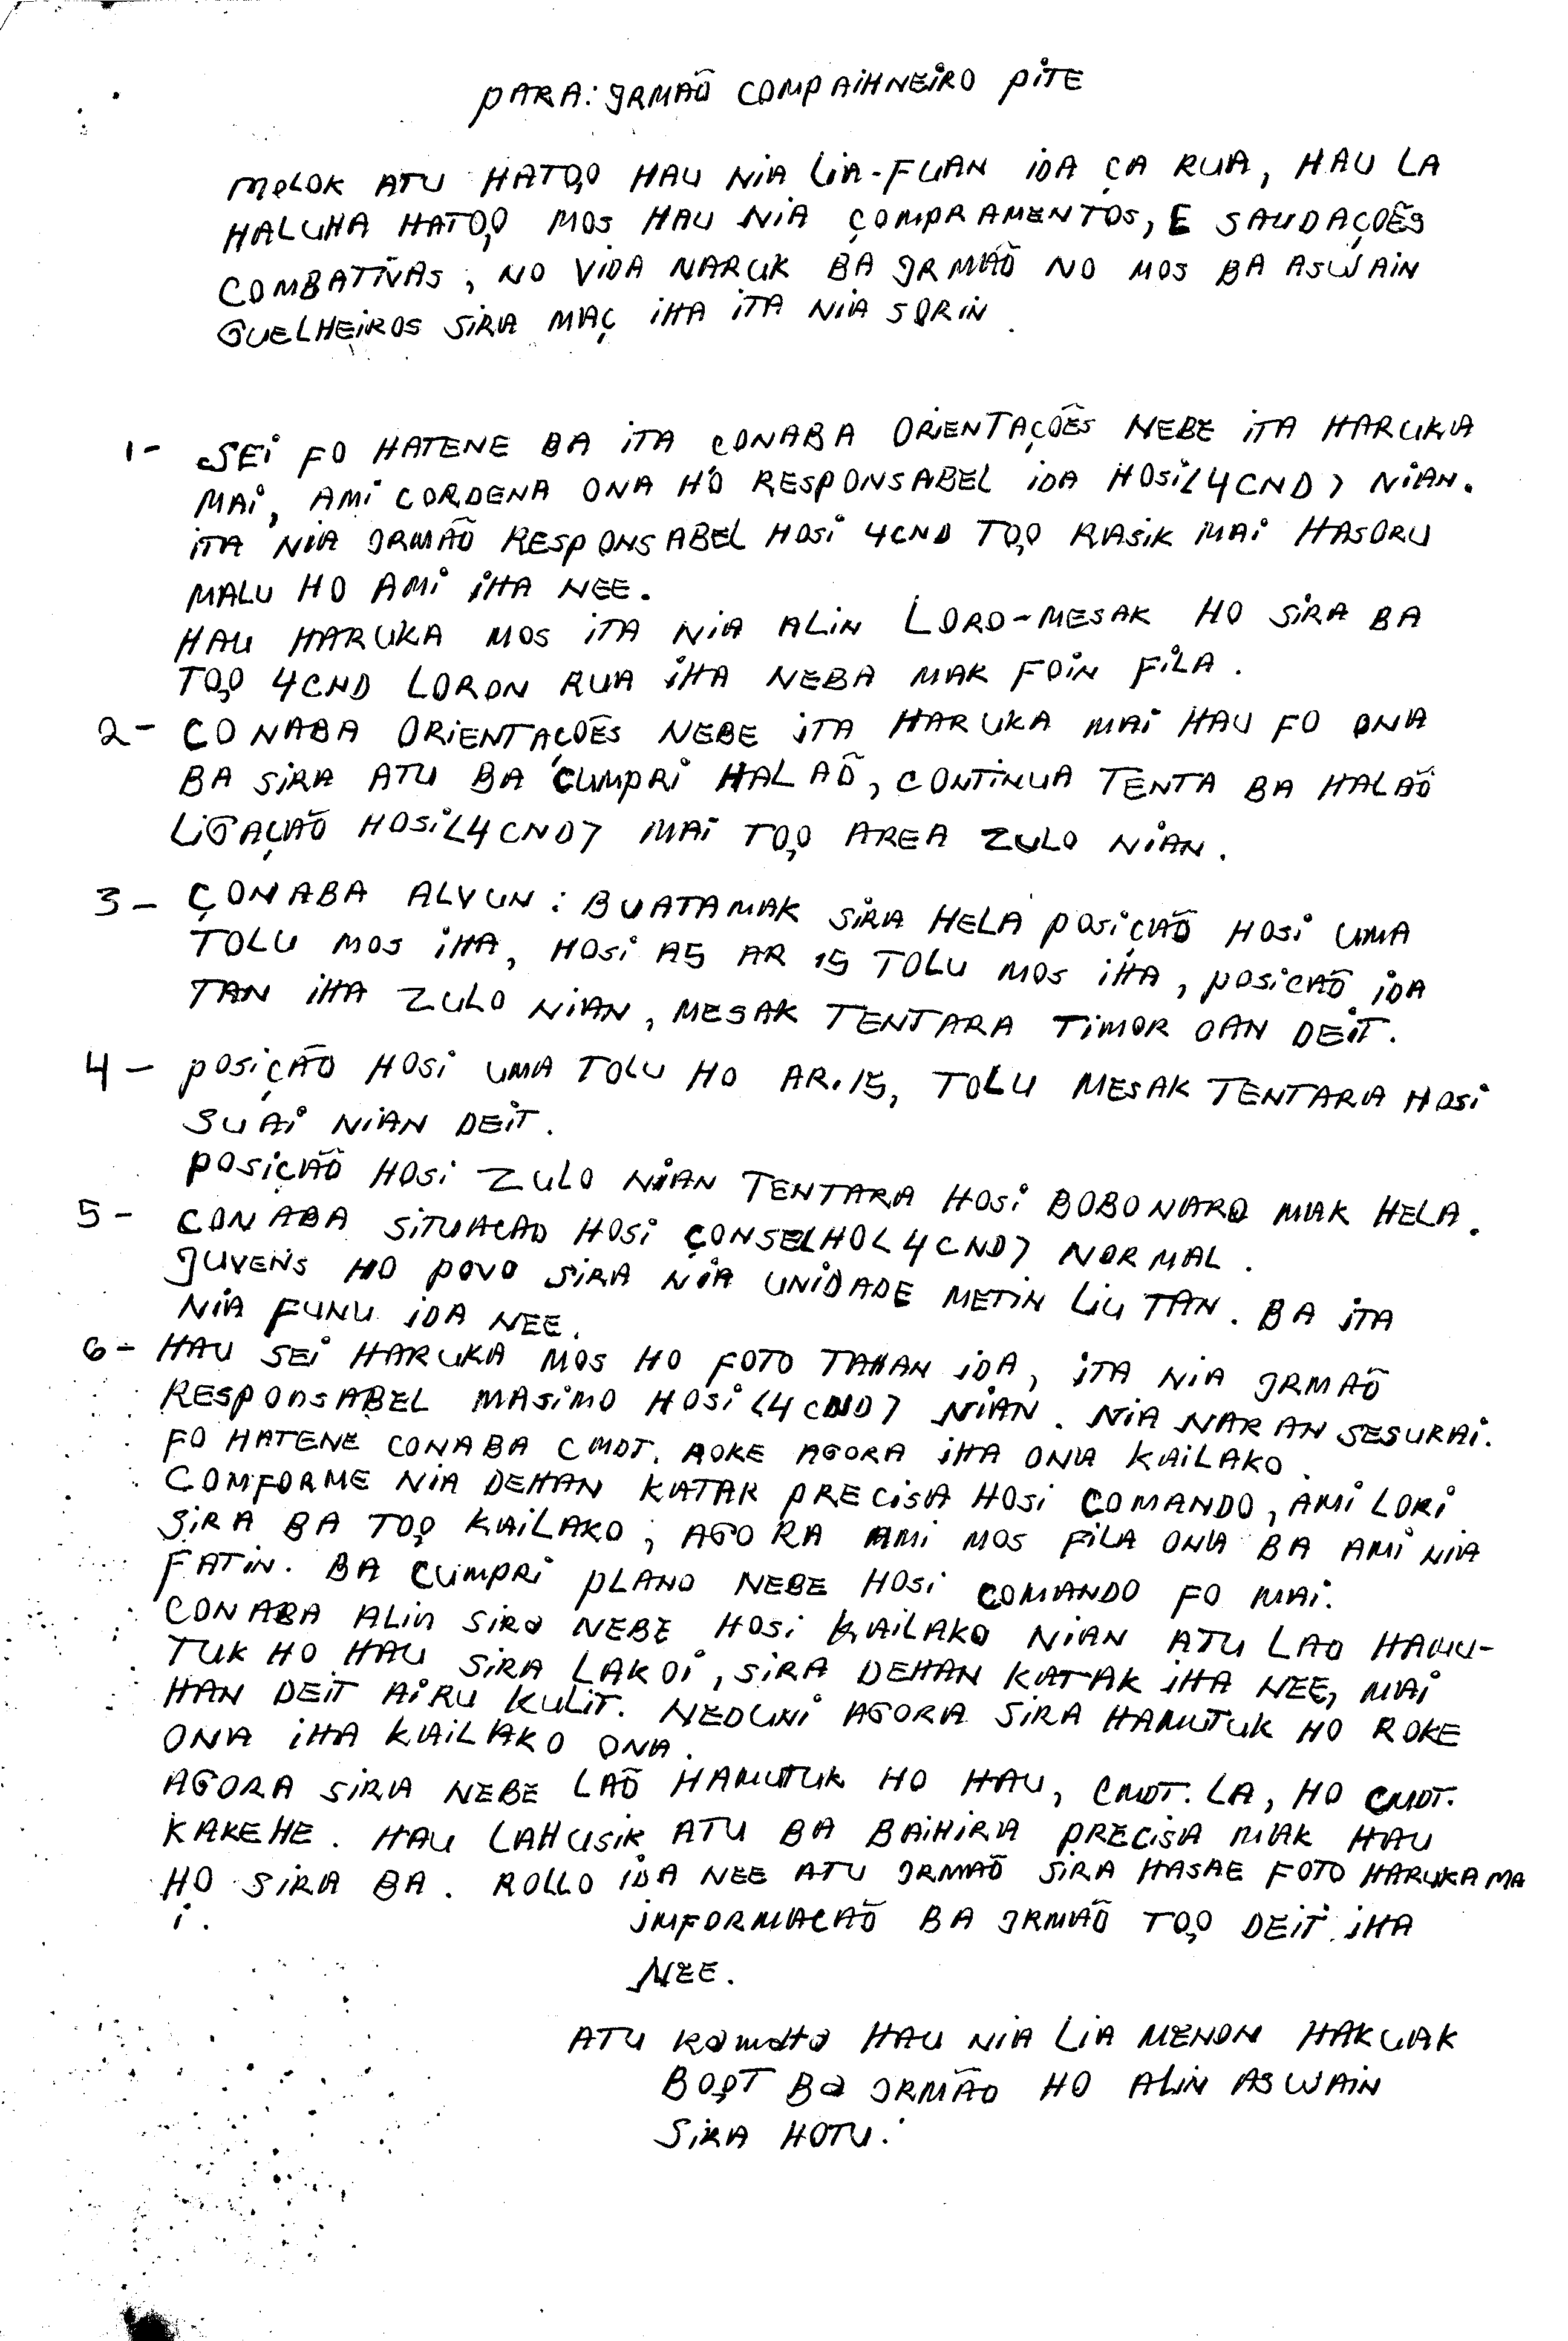 PARA: IRMAÕ COMPAIHNEIRO PITE
MOLOK ATU HATOO HAU NIA LIA-FUAN IDA ÇA RUA, HAU LA
HALUHA HATOO MOS HAU NIA ÇOMPRAMENTOS, E SAUDAÇOẼS
COMBATIVAS, NO VIDA NARUK BA IRMAÕ NO MOS BA ASWAIN
GUELHEIROS SIRA MAÇ IHA ITA NIA SORIN.
1- SEI FO HATENE BA ITA CONABA ORIENTAÇOẼS NEBE ITA HARUKA
MAI, AMI CORDENA ONA HO RESPONSABEL IDA HOSI<4CND> NIAN.
ITA NIA IRMAÕ RESPONSABEL HOSI 4CND TOO RASIK MAI HASORU
MALU HO AMI IHA NEE.
HAU HARUKA MOS ITA NIA ALIN LORO-MESAK HO SIRA BA
TOO 4CND LORON RUA IHA NEBA MAK FOIN FILA.
2- CONABA ORIENTAÇOẼS NEBE ITA HARUKA MAI HAU FO ONA
BA SIRA ATU BA CUMPRI HALAÕ, CONTINUA TENTA BA HALAÕ
LIGAÇAÕ HOSI<4CND> MAI TOO AREA ZULO NIAN.
3- ÇONABA ALVUN: BUATAMAK SIRA HELA POSIÇAÕ HOSI UMA
TOLU MOS IHA, HOSI A5 AR 15 TOLU MOS IHA, POSICAÕ IDA
TAN IHA ZULO NIAN, MESAK TENTARA TIMOR OAN DEIT.
4- POSIÇAÕ HOSI UMA TOLU HO AR.15, TOLU MESAK TENTARA HOSI
SUAI NIAN DEIT.
POSIÇAÕ HOSI ZULO NIAN TENTARA HOSI BOBONARO MAK HELA.
5- CONABA SITUACAO HOSI ÇONSELHO<4CND> NORMAL.
JUVENS HO POVO SIRA NIA UNIDADE METIN LIU TAN. BA ITA
NIA FUNU IDA NEE.
6- HAU SEI HARUKA MOS HO FOTO TAHAN IDA, ITA NIA IRMAÕ
RESPONSABEL MASIMO HOSI<4CND> NIAN. NIA NARAN SESURAI.
FO HATENE CONABA CMDT. ROKE AGORA IHA ONA KAILAKO.
COMFORME NIA DEHAN KATAK PRECISA HOSI COMANDO, AMI LORI
SIRA BA TOO KAILAKO, AGORA AMI MOS FILA ONA BA AMI NIA
FATIN. BA CUMPRI PLANO NEBE HOSI COMANDO FO MAI.
CONABA ALIN SIRA NEBE HOSI KAILAKO NIAN ATU LAO HAMU-
TUK HO HAU SIRA LAKOI, SIRA DEHAN KATAK IHA NEE, MAI
HAN DEIT AIRU KULIT. NEDUNI AGORA SIRA HAMUTUK HO ROKE
ONA IHA KAILAKO ONA.
AGORA SIRA NEBE LAÕ HAMUTUK HO HAU, CMDT. LA, HO CMDT.
KAKEHE. HAU LAHUSIK ATU BA BAIHIRA PRECISA MAK HAU
HO SIRA BA. ROLLO IDA NEE ATU IRMAÕ SIRA HASAE FOTO HARUKA MA
I.
IMFORMACAÕ BA IRMAÕ TOO DEIT IHA
NEE.
ATU RAMATA HAU NIA LIA MENON HAKUAK
BOOT BA IRMÃO HO ALIN ASWAIN
SIRA HOTU.